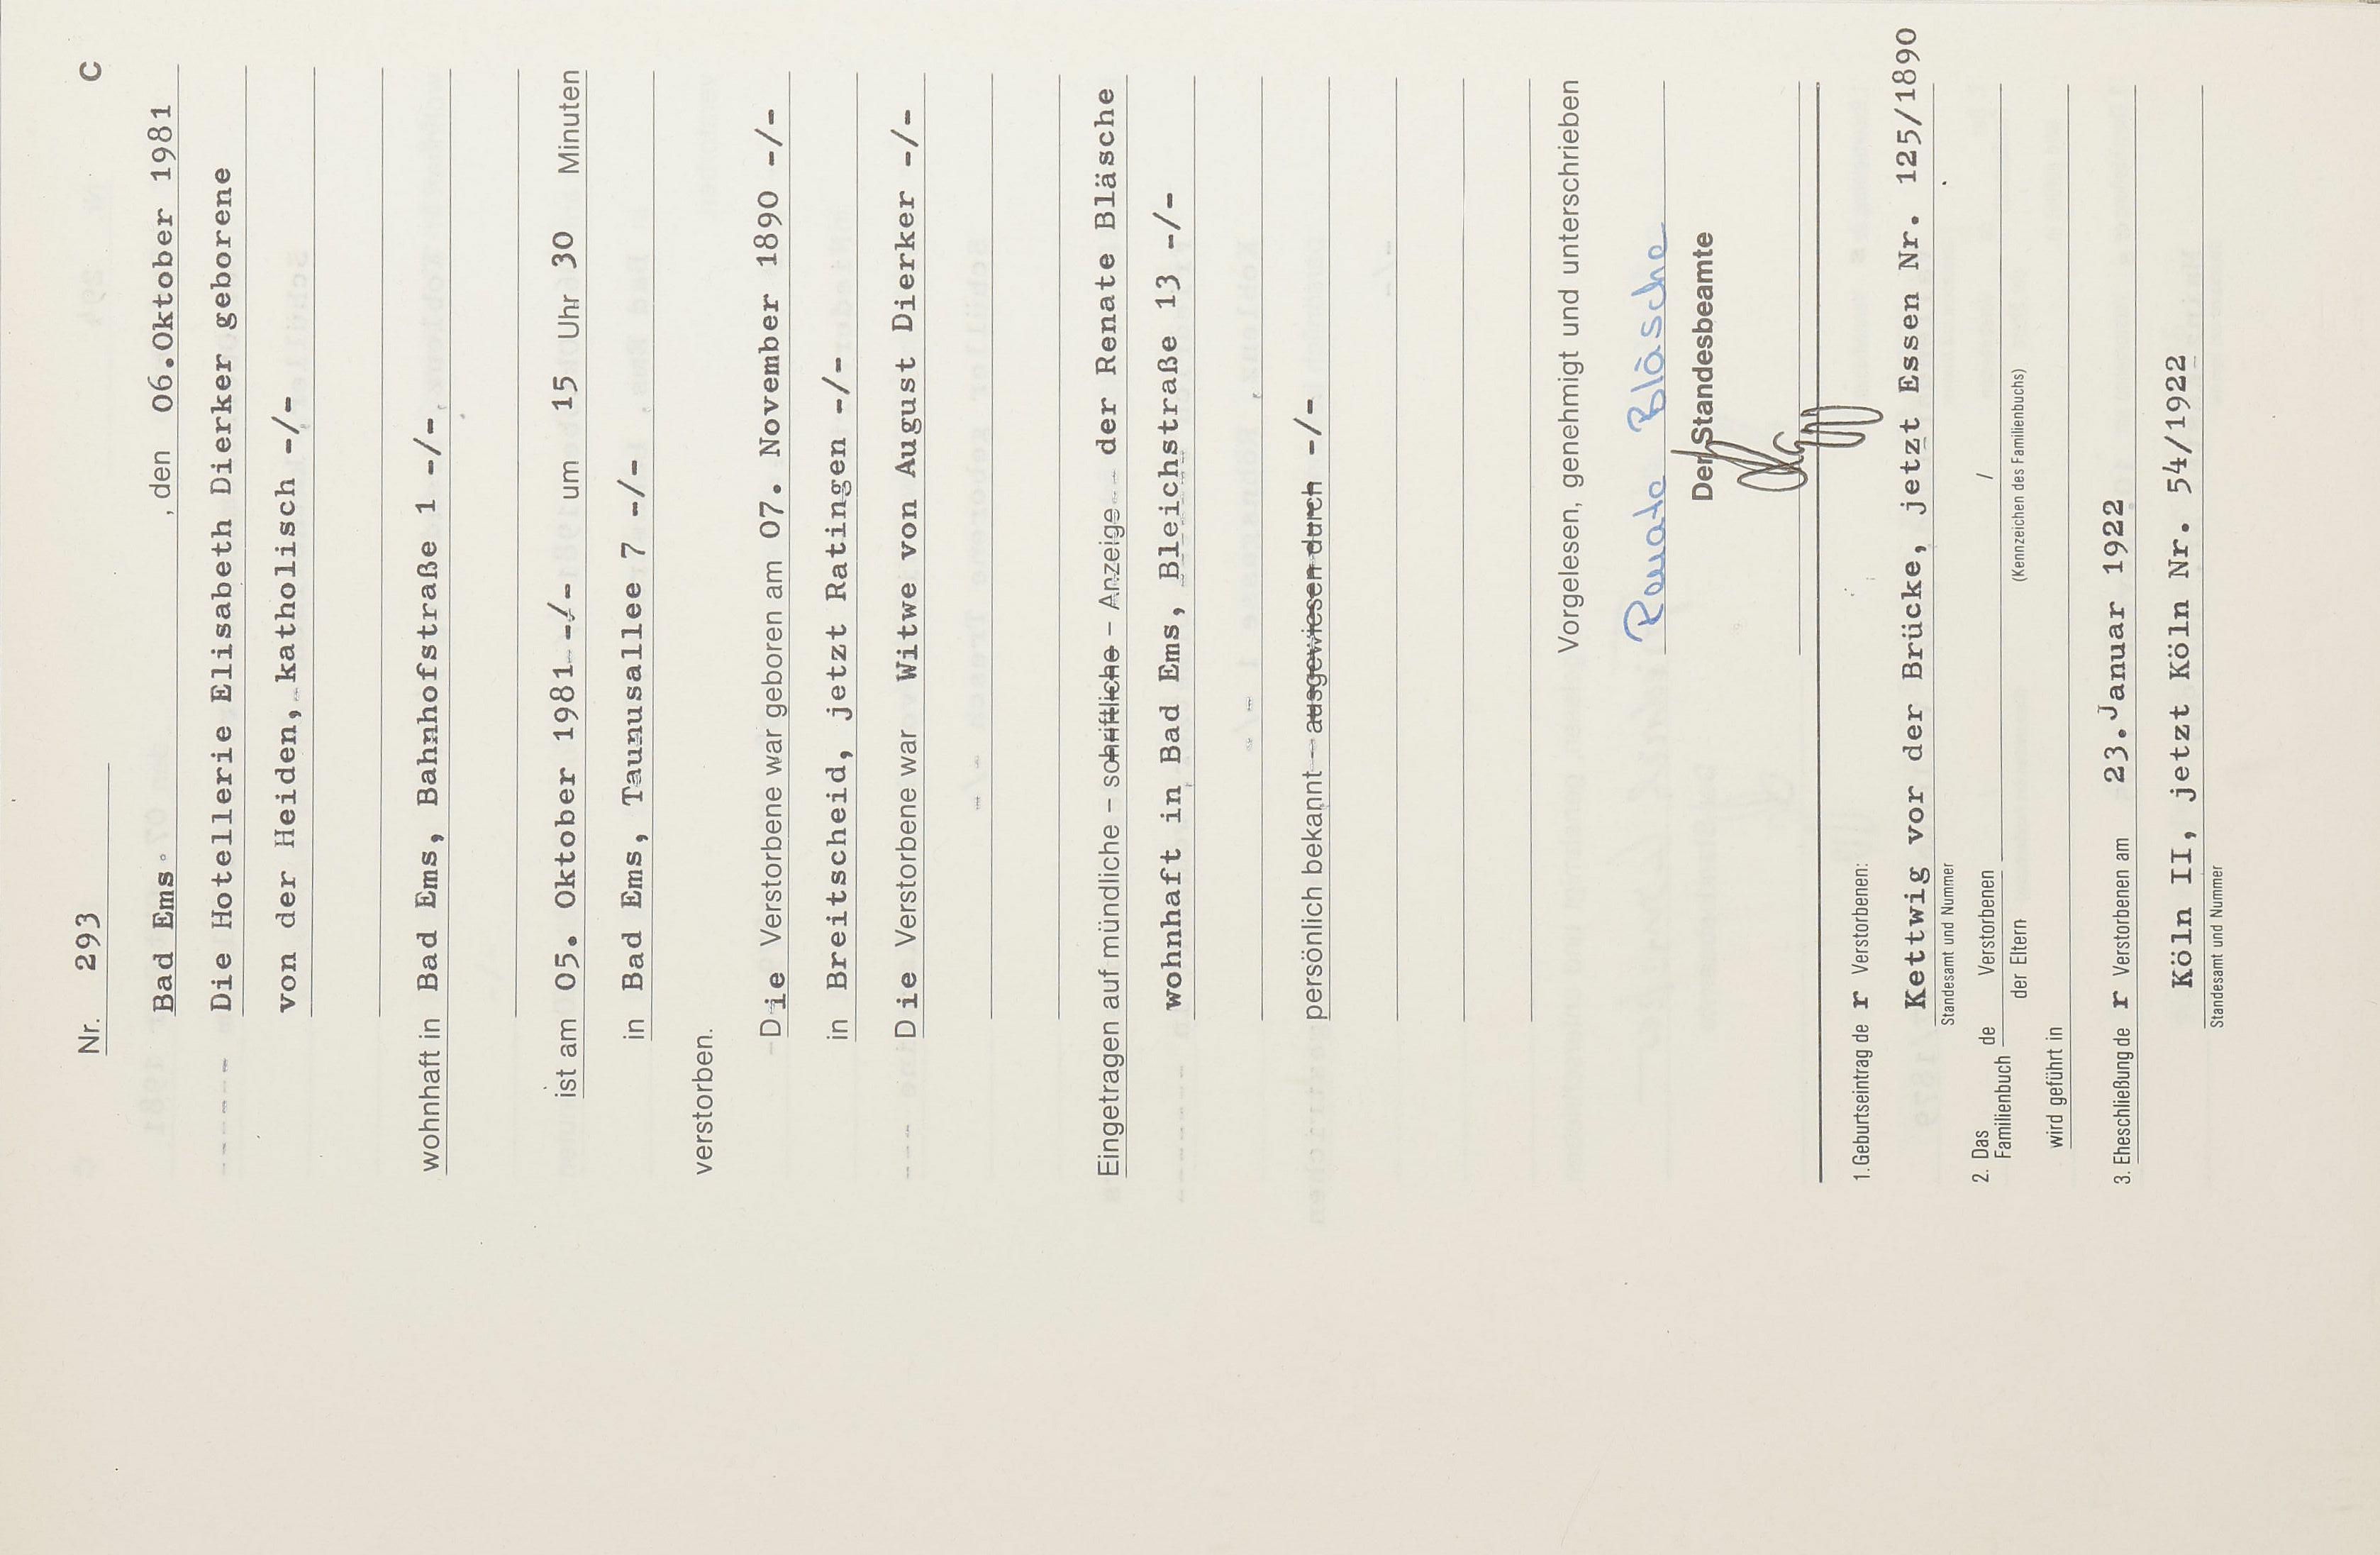 C
Nr. 293
Bad Ems , den 06.Oktober 1981
Die Hotellerie Elisabeth Dierker geborene
von der Heiden, katholisch -/-
wohnhaft in Bad Ems, Bahnhofstraße 1 -/-
ist am 05. Oktober 1981 -/- um 15 Uhr 30 Minuten
in Bad Ems, Taunusallee 7 -/-
verstorben.
Die Verstorbene war geboren am 07. November 1890 -/-
in Breitscheid, jetzt Ratingen -/-
Die Verstorbene war Witwe von August Dierker -/-
Eingetragen auf mündliche – schriftliche – Anzeige der Renate Bläsche
wohnhaft in Bad Ems, Bleichstraße 13 -/-
persönlich bekannt – ausgewiesen durch -/-
Vorgelesen, genehmigt und unterschrieben
Renate Bläsche
Der Standesbeamte
1. Geburtseintrag de r Verstorbenen:
Kettwig vor der Brücke, jetzt Essen Nr. 125/1890
Standesamt und Nummer
2. Das Familienbuch de Verstorbenen /
der Eltern (Kennzeichen des Familienbuchs)
wird geführt in
3. Eheschließung de r Verstorbenen am 23.Januar 1922
Köln II, jetzt Köln Nr. 54/1922
Standesamt und Nummer